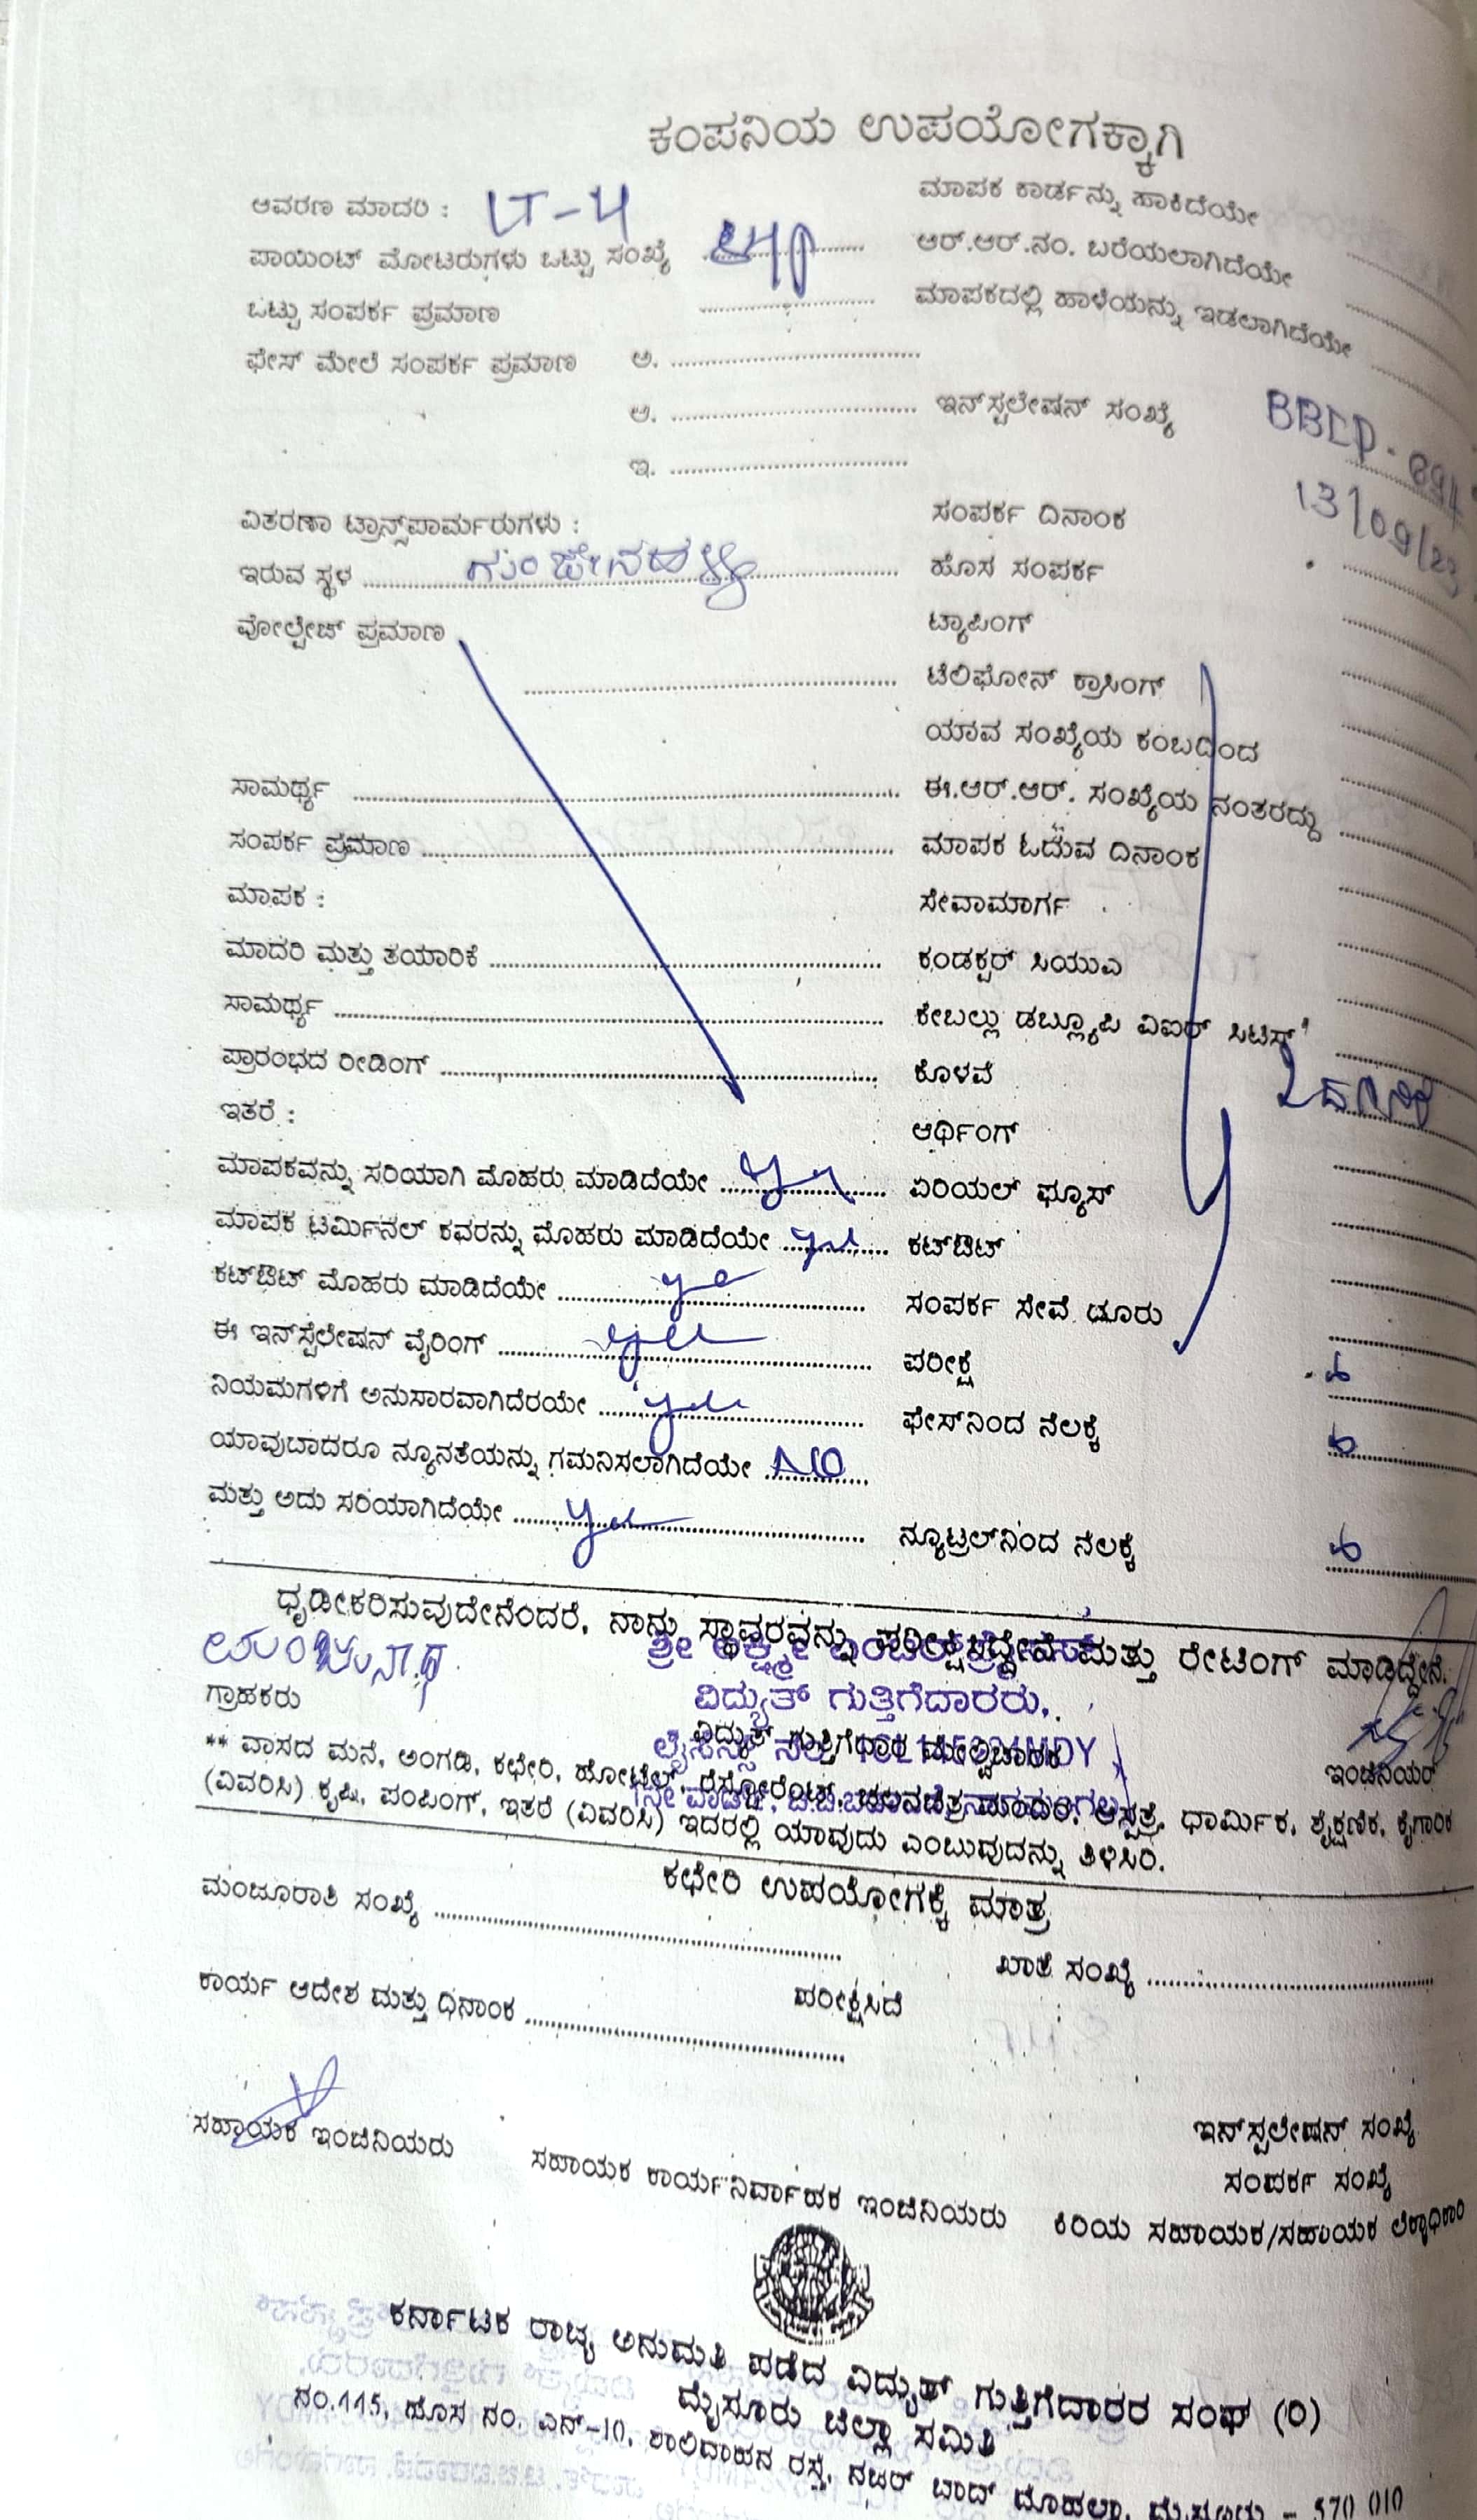 ಕಂಪನಿಯ ಉಪಯೋಗಕ್ಕಾಗಿ
ಆವರಣ ಮಾದರಿ : LT-4
ಮಾಪಕ ಕಾರ್ಡನ್ನು ಹಾಕಿದೆಯೇ
ಪಾಯಿಂಟ್ ಮೋಟರುಗಳು ಒಟ್ಟು ಸಂಖ್ಯೆ
ಆರ್.ಆರ್.ನಂ. ಬರೆಯಲಾಗಿದೆಯೇ
ಒಟ್ಟು ಸಂಪರ್ಕ ಪ್ರಮಾಣ
ಮಾಪಕದಲ್ಲಿ ಹಾಳೆಯನ್ನು ಇಡಲಾಗಿದೆಯೇ
ಫೇಸ್ ಮೇಲೆ ಸಂಪರ್ಕ ಪ್ರಮಾಣ ಅ.
ಆ.
ಇನ್‌ಸ್ಟಲೇಷನ್ ಸಂಖ್ಯೆ
ಇ.
ವಿತರಣಾ ಟ್ರಾನ್ಸ್‌ಪಾರ್ಮರುಗಳು :
ಸಂಪರ್ಕ ದಿನಾಂಕ 13/09/23
ಇರುವ ಸ್ಥಳ
ಹೊಸ ಸಂಪರ್ಕ
ವೋಲ್ಟೇಜ್ ಪ್ರಮಾಣ
ಟ್ಯಾಪಿಂಗ್
ಟೆಲಿಫೋನ್ ಕ್ರಾಸಿಂಗ್
ಯಾವ ಸಂಖ್ಯೆಯ ಕಂಬದಿಂದ
ಸಾಮರ್ಥ್ಯ
ಈ.ಆರ್.ಆರ್. ಸಂಖ್ಯೆಯ ನಂತರದ್ದು
ಸಂಪರ್ಕ ಪ್ರಮಾಣ
ಮಾಪಕ ಓದುವ ದಿನಾಂಕ
ಮಾಪಕ :
ಸೇವಾಮಾರ್ಗ
ಮಾದರಿ ಮತ್ತು ತಯಾರಿಕೆ
ಕಂಡಕ್ಟರ್ ಸಿಯುಎ
ಸಾಮರ್ಥ್ಯ
ಕೇಬಲ್ಲು ಡಬ್ಲ್ಯೂಪಿ ವಿಐಆರ್ ಸಿಟಿಸ್
ಪ್ರಾರಂಭದ ರೀಡಿಂಗ್
ಕೊಳವೆ
ಇತರೆ :
ಆರ್ಥಿಂಗ್
ಮಾಪಕವನ್ನು ಸರಿಯಾಗಿ ಮೊಹರು ಮಾಡಿದೆಯೇ yes
ಏರಿಯಲ್ ಫ್ಯೂಸ್
ಮಾಪಕ ಟರ್ಮಿನಲ್ ಕವರನ್ನು ಮೊಹರು ಮಾಡಿದೆಯೇ yes
ಕಟ್‌ಔಟ್
ಕಟ್‌ಔಟ್ ಮೊಹರು ಮಾಡಿದೆಯೇ yes
ಸಂಪರ್ಕ ಸೇವೆ ದೂರು
ಈ ಇನ್‌ಸ್ಟೆಲೇಷನ್ ವೈರಿಂಗ್ yes
ಪರೀಕ್ಷೆ
ನಿಯಮಗಳಿಗೆ ಅನುಸಾರವಾಗಿದೆರಯೇ yes
ಫೇಸ್‌ನಿಂದ ನೆಲಕ್ಕೆ
ಯಾವುದಾದರೂ ನ್ಯೂನತೆಯನ್ನು ಗಮನಿಸಲಾಗಿದೆಯೇ NO
ಮತ್ತು ಅದು ಸರಿಯಾಗಿದೆಯೇ yes
ನ್ಯೂಟ್ರಲ್‌ನಿಂದ ನೆಲಕ್ಕೆ
ಧೃಡೀಕರಿಸುವುದೇನೆಂದರೆ, ನಾನು ಸ್ಥಾವರವನ್ನು ಪರೀಕ್ಷಿಸಿದ್ದೇನೆ ಮತ್ತು ರೇಟಿಂಗ್ ಮಾಡಿದ್ದೇನೆ.
ವಿದ್ಯುತ್ ಗುತ್ತಿಗೆದಾರರು,
ಗ್ರಾಹಕರು
ವಿದ್ಯುತ್ ಗುತ್ತಿಗೆದಾರ ಮೇಲ್ವಿಚಾರಕ
ಇಂಜಿನಿಯರ್
** ವಾಸದ ಮನೆ, ಅಂಗಡಿ, ಕಛೇರಿ, ಹೋಟೆಲ್, ರೆಸ್ಟೋರೆಂಟ್, ಚಲನಚಿತ್ರ ಮಂದಿರ, ಆಸ್ಪತ್ರೆ, ಧಾರ್ಮಿಕ, ಶೈಕ್ಷಣಿಕ, ಕೈಗಾರಿಕ
(ವಿವರಿಸಿ) ಕೃಷಿ, ಪಂಪಿಂಗ್, ಇತರೆ (ವಿವರಿಸಿ) ಇದರಲ್ಲಿ ಯಾವುದು ಎಂಬುವುದನ್ನು ತಿಳಿಸಿರಿ.
ಕಛೇರಿ ಉಪಯೋಗಕ್ಕೆ ಮಾತ್ರ
ಮಂಜೂರಾತಿ ಸಂಖ್ಯೆ
ಖಾತೆ ಸಂಖ್ಯೆ
ಕಾರ್ಯ ಆದೇಶ ಮತ್ತು ದಿನಾಂಕ
ಪರೀಕ್ಷಿಸಿದೆ
ಇನ್‌ಸ್ಪಲೇಷನ್ ಸಂಖ್ಯೆ
ಸಂಪರ್ಕ ಸಂಖ್ಯೆ
ಸಹಾಯಕ ಇಂಜಿನಿಯರು
ಸಹಾಯಕ ಕಾರ್ಯನಿರ್ವಾಹಕ ಇಂಜಿನಿಯರು
ಕಿರಿಯ ಸಹಾಯಕ/ಸಹಾಯಕ ಲೆಕ್ಕಾಧಿಕಾರಿ
ಕರ್ನಾಟಕ ರಾಜ್ಯ ಅನುಮತಿ ಪಡೆದ ವಿದ್ಯುತ್ ಗುತ್ತಿಗೆದಾರರ ಸಂಘ (ರಿ)
ಮೈಸೂರು ಜಿಲ್ಲಾ ಸಮಿತಿ
ನಂ.115, ಹೊಸ ನಂ. ಎನ್-10, ಶಾಲಿವಾಹನ ರಸ್ತೆ, ನಜರ್ ಬಾದ್ ಮೊಹಲ್ಲಾ, ಮೈಸೂರು - 570 010